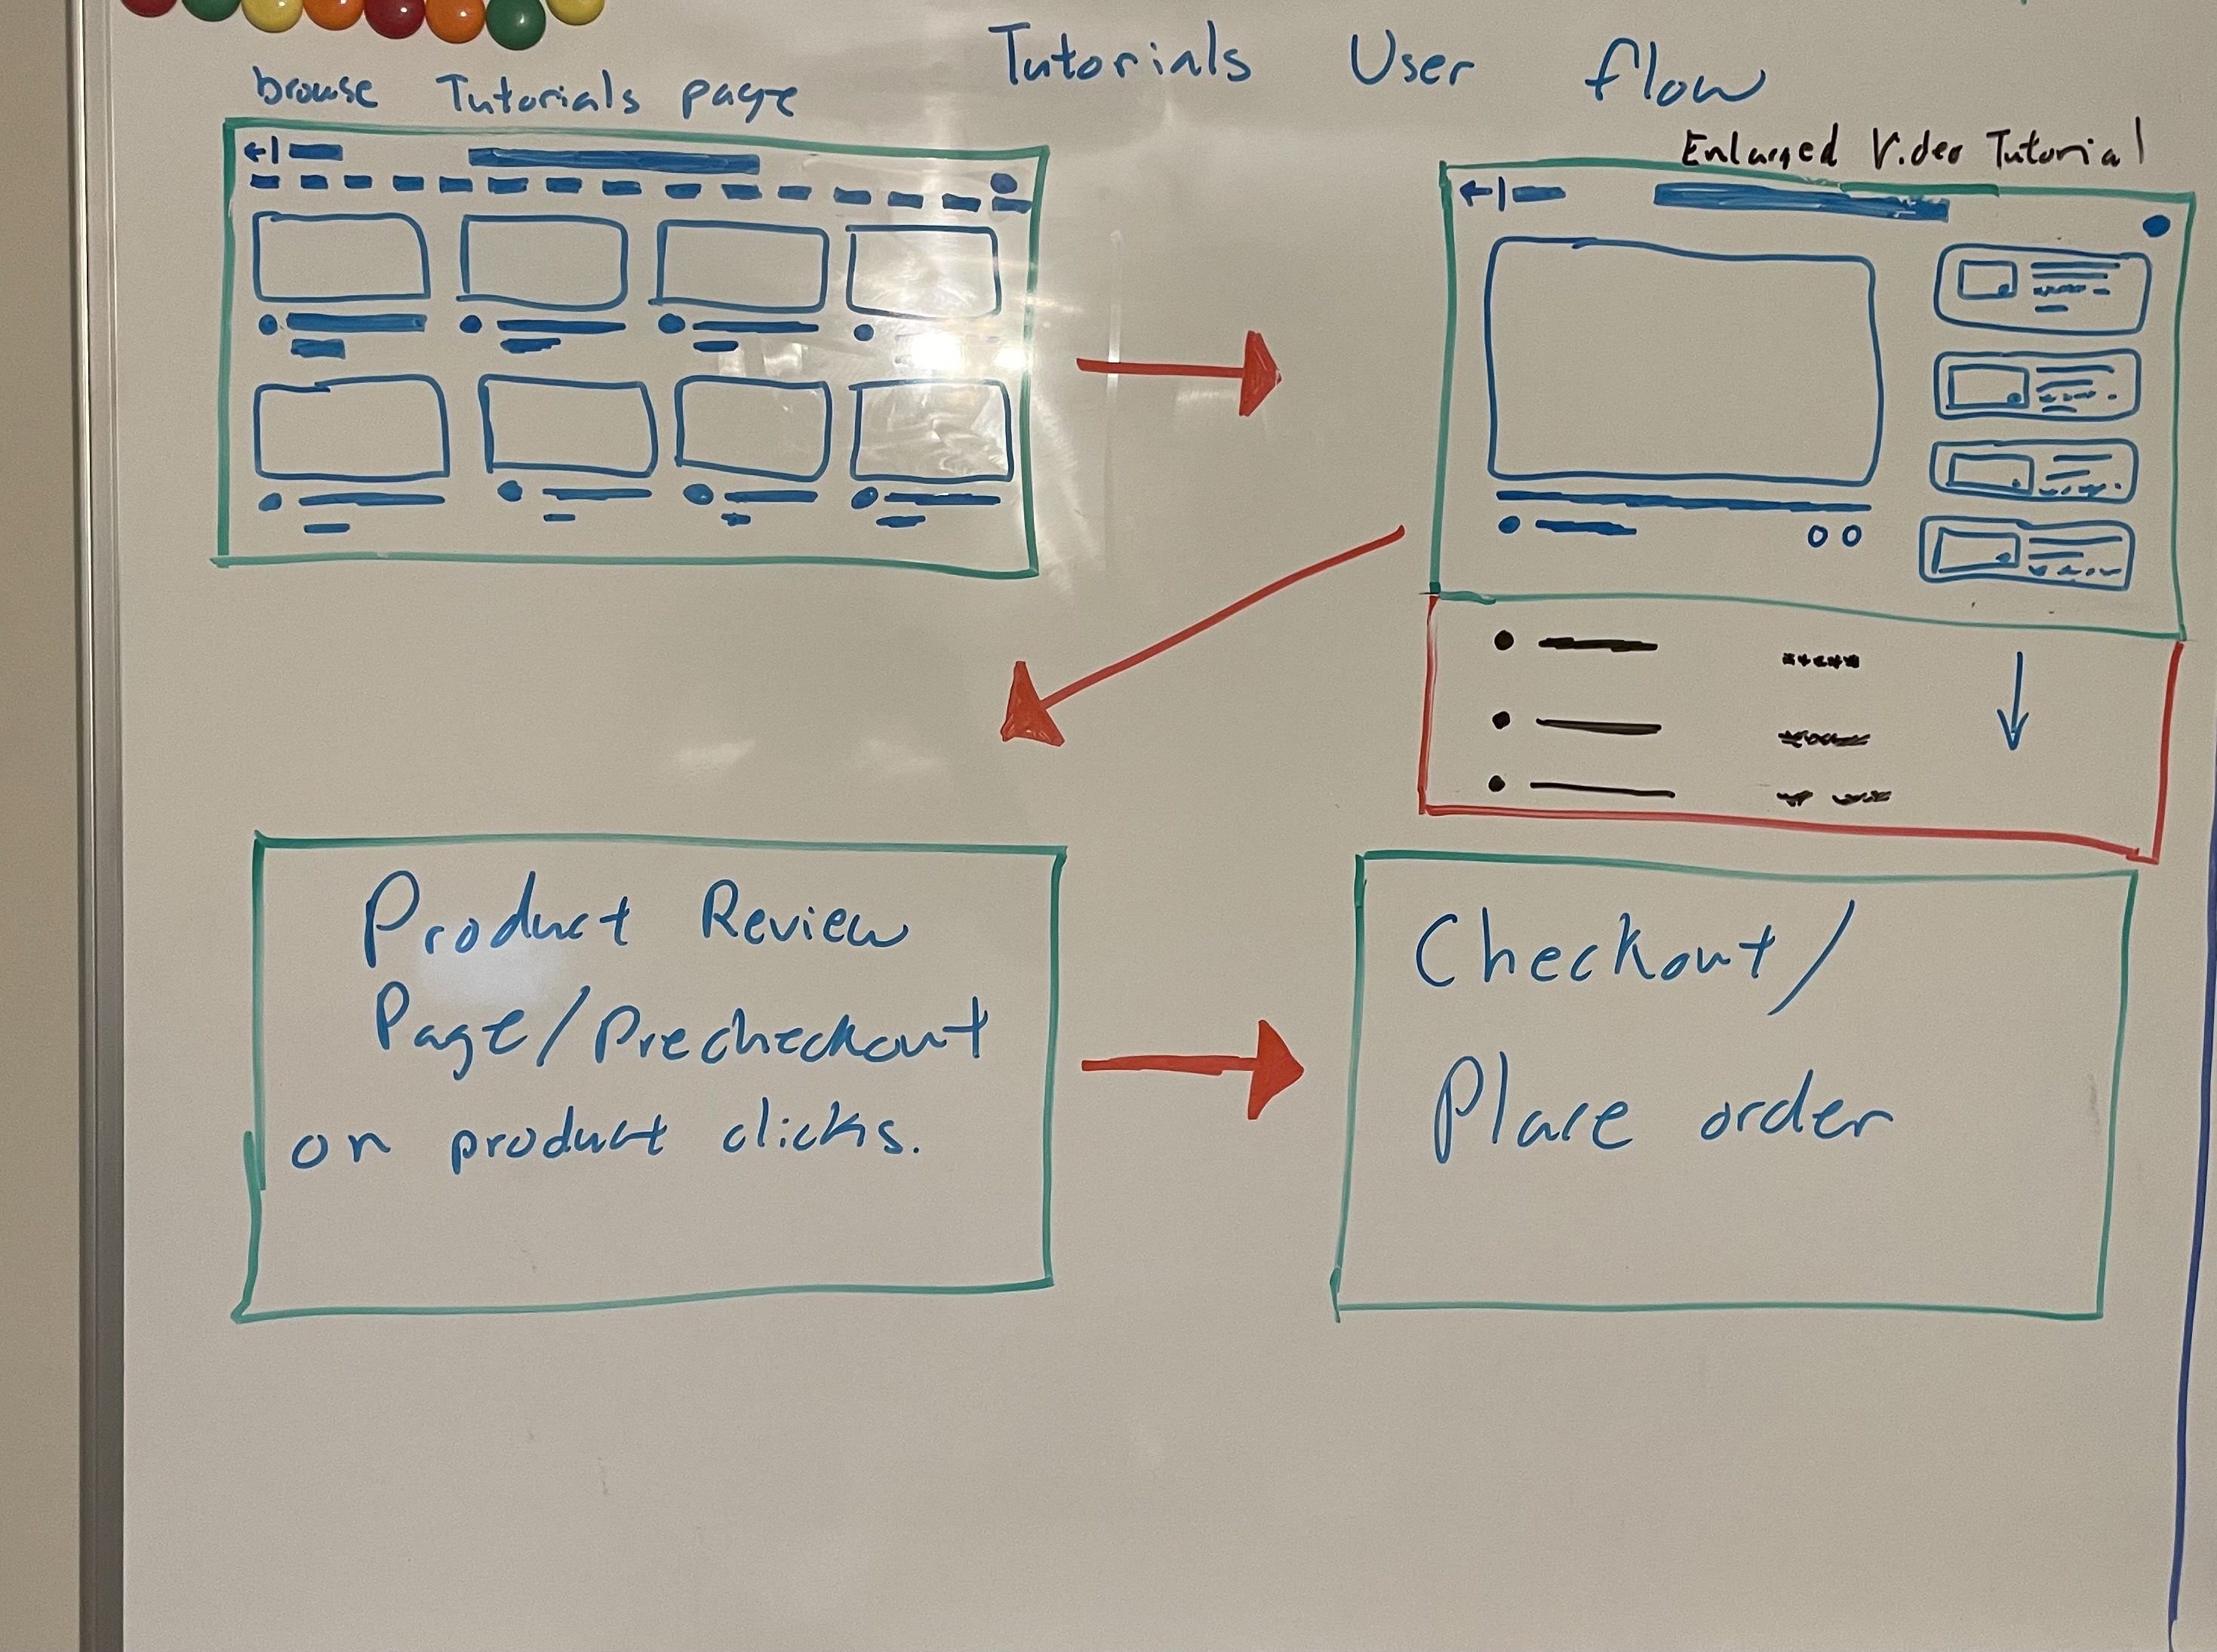 Tutorials User flow
browse Tutorials page
Enlarged Video Tutorial
Product Review
Page/Precheckout
on product clicks.
Checkout/
Place order